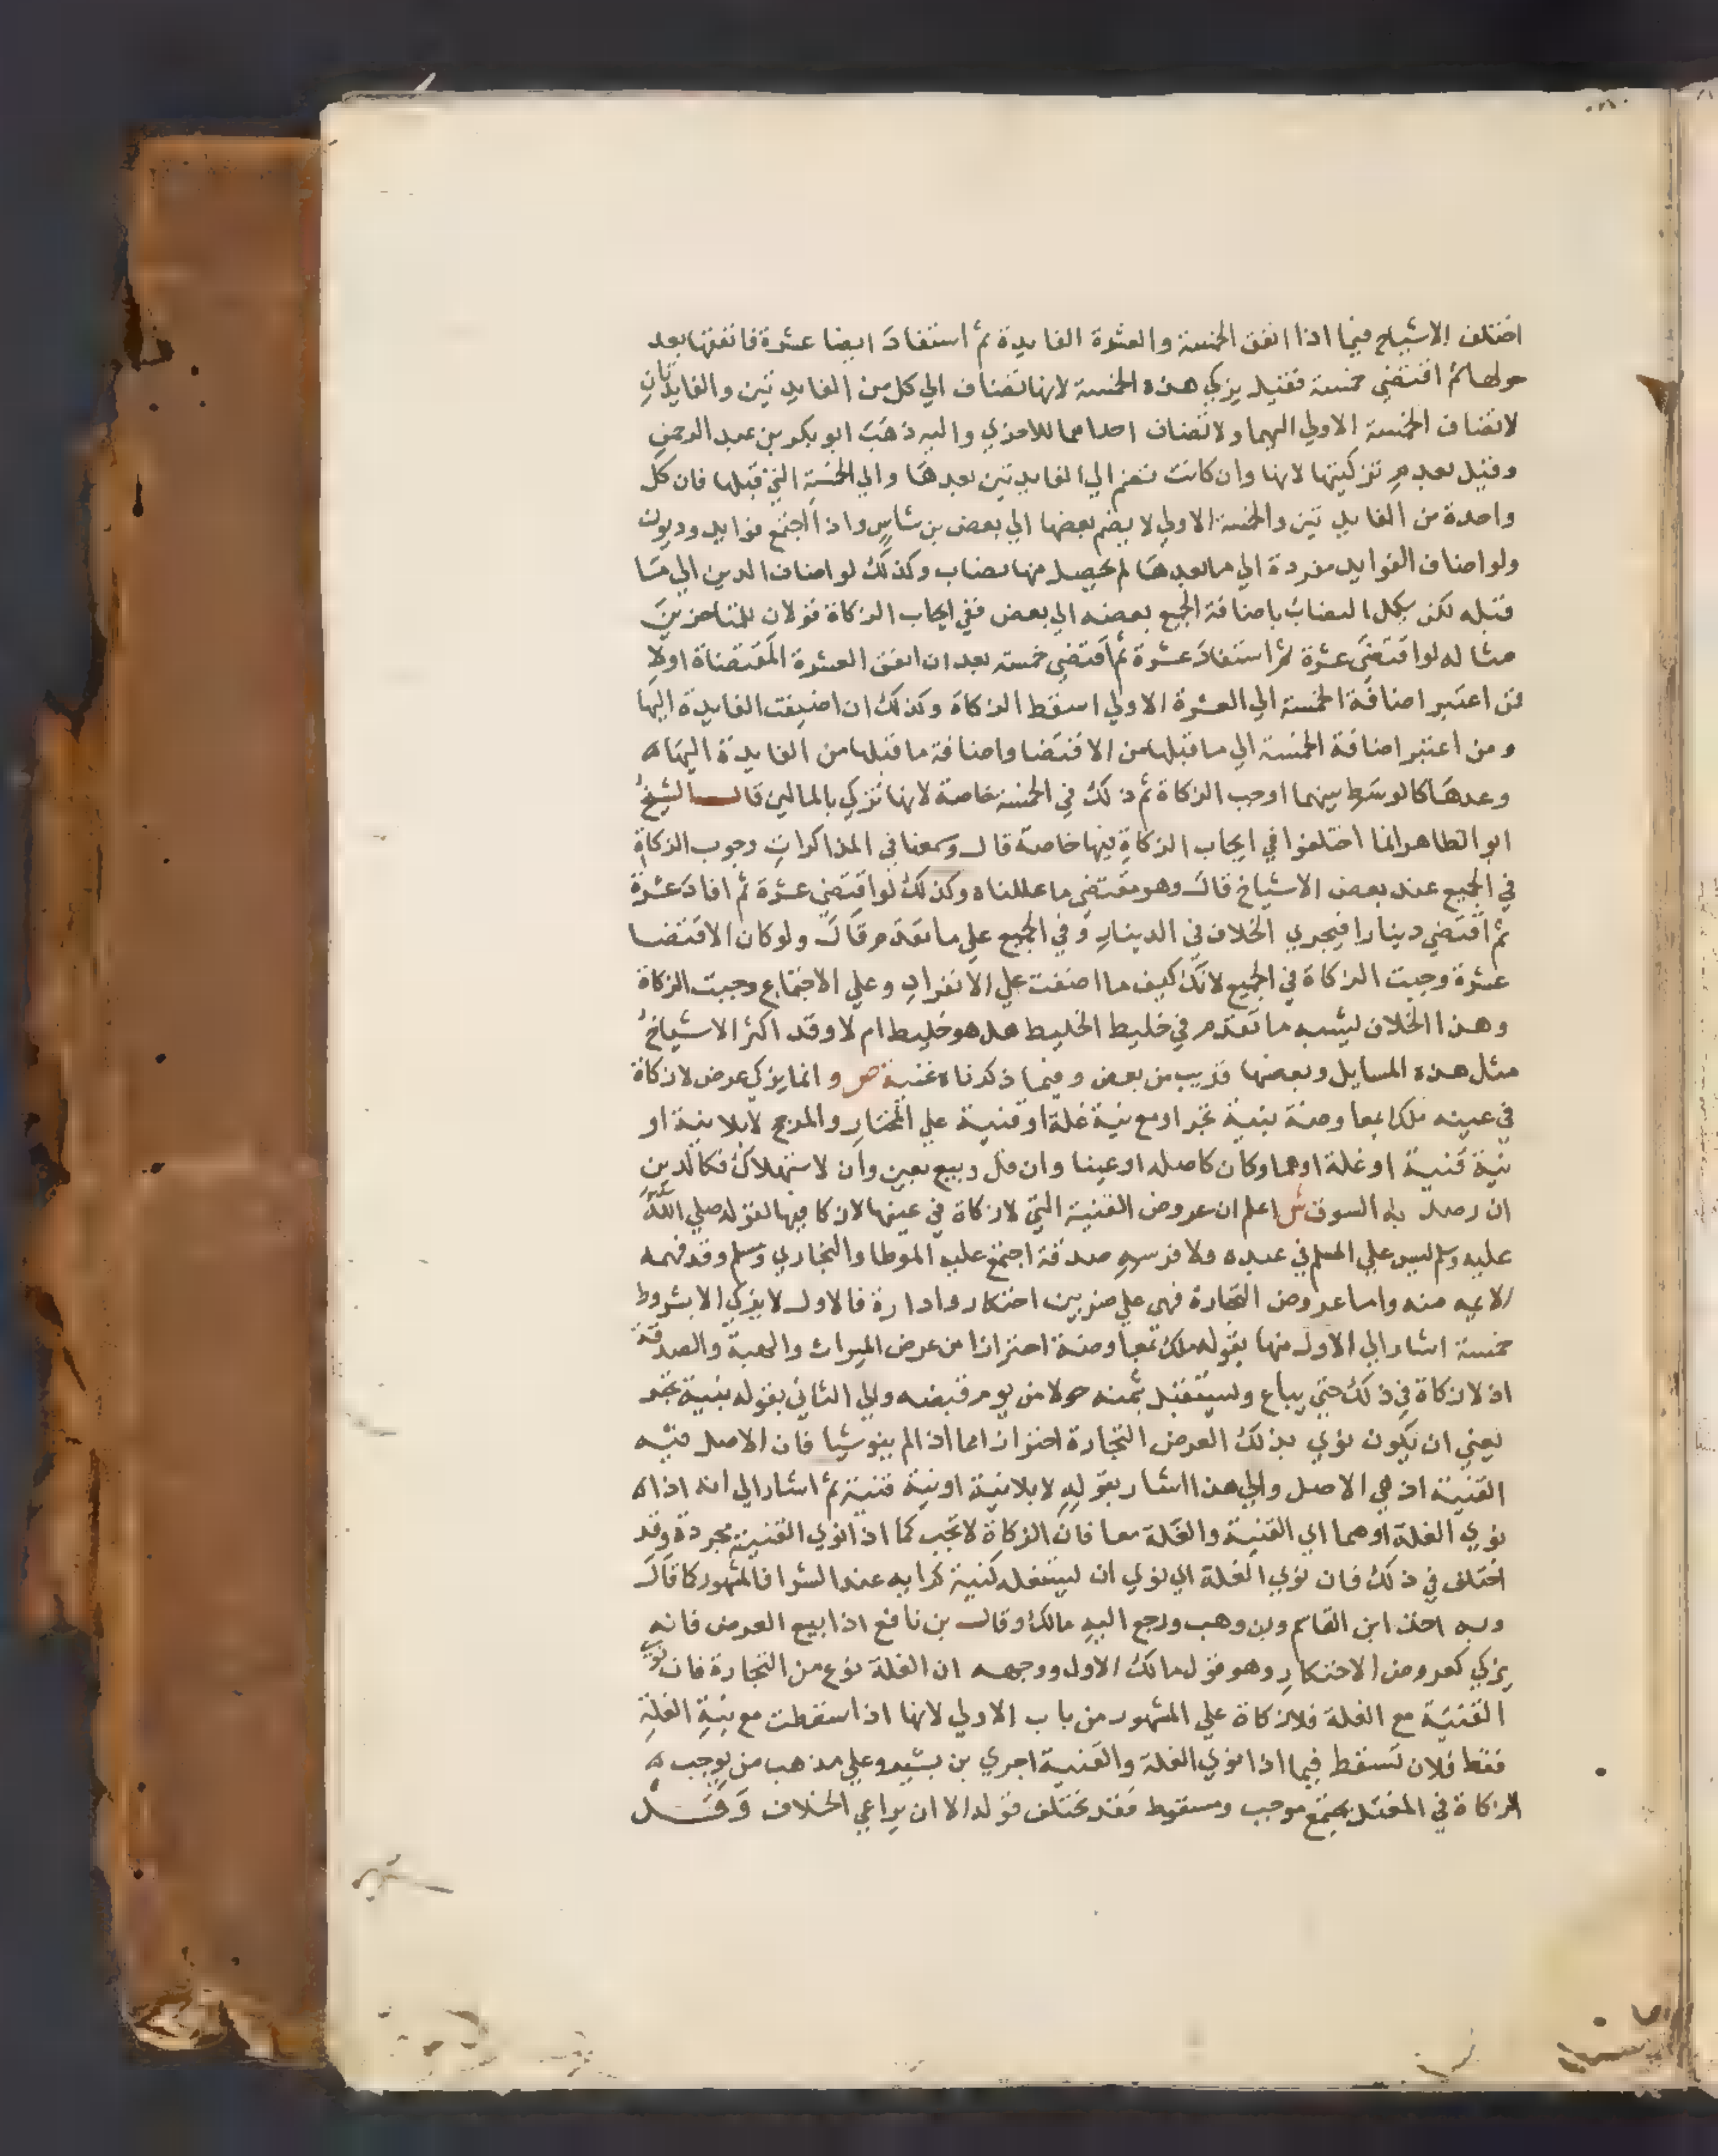 اختلف الاشياخ فيما اذا انفق الخمسة والعشرة الفايدة ثم استفاد ايضا عشرة فانفقها بعد
حولها ثم اقتضي خمسة فقيل يزكي هذه الخمسة لانها تضاف الي كل من الفايدتين والفايدتان
لا تضاف الخمسة الاولي اليهما ولا تضاف احداهما للاخري واليه ذهب ابو بكر بن عبد الرحمن
وقيل بعدم تزكيتها لانها وان كانت تضم الي الفايدتين بعدها والي الخمسة التي قبلها فان كل
واحدة من الفايدتين والخمسة الاولي لا يضم بعضها الي بعض بن شاس واذا اجتمع فوايد وديون
ولو اضاف الفوايد مفردة الي ما بعدها لم يحصل منها نصاب وكذلك لو اضاف الدين الي ما
قبله لكن يكمل النصاب باضافة الجميع بعضه الي بعض ففي ايجاب الزكاة قولان للمتاخرين
مثاله لو اقتضي عشرة ثم استفاد عشرة ثم اقتضي خمسة بعد ان انفق العشرة المقتضاة اولا
فمن اعتبر اضافة الخمسة الي العشرة الاولي اسقط الزكاة وكذلك ان اضيفت الفايدة اليها
ومن اعتبر اضافة الخمسة الي ما قبلها من الاقتضا واضافة ما قبلها من الفايدة اليها
وعدها كالوسط بينهما اوجب الزكاة ثم ذلك في الخمسة خاصة لانها تزكي بالمالين قال الشيخ
ابو الطاهر انما اختلفوا في ايجاب الزكاة فيها خاصة قال وسمعنا في المذاكرات وجوب الزكاة
في الجميع عند بعض الاشياخ قال وهو مقتضي ما عللناه وكذلك لو اقتضي عشرة ثم افاد عشرة
ثم اقتضي دينارا فيجري الخلاف في الدينار وفي الجميع علي ما تقدم قال ولو كان الاقتضا
عشرة وجبت الزكاة في الجميع لانك كيف ما اضفت علي الانفراد وعلي الاجتماع وجبت الزكاة
وهذا الخلاف يشبه ما تقدم في خليط الخليط هل هو خليط ام لا وقد اكثر الاشياخ
مثل هذه المسايل وبعضها قريب من بعض وفيما ذكرناه غنية ص وانما يزكي عرض لا زكاة
في عينه ملك بمعاوضة بنية تجر او مع نية غلة او قنية علي المختار والمرجح لا بلا نية او
نية قنية او غلة او هما وكان كاصله او عينا وان قل وبيع بعين وان لاستهلاك فكالدين
ان رصد به السوق ش اعلم ان عروض القنية التي لا زكاة في عينها لا زكا فيها لقوله صلي الله
عليه وسلم ليس علي المسلم في عبده ولا فرسه صدقة اجتمع عليه الموطا والبخاري ومسلم وقد فهمه
الايمه منه واما عروض التجارة فهي علي ضربين احتكار وادارة فالاول لا يزكي الا بشروط
خمسة اشار الي الاول منها بقوله ملك بمعاوضة احترازا من عرض الميراث والهبة والصدقة
اذ لا زكاة في ذلك حتي يباع ويستقبل بثمنه حولا من يوم قبضه والي الثاني بقوله بنية تجر
يعني ان يكون نوي بذلك العرض التجارة احترازا مما اذا لم ينو شيا فان الاصل فيه
القنية اذ هي الاصل والي هذا اشار بقوله لا بلا نية او نية قنية ثم اشار الي انه اذا
نوي الغلة او هما اي القنية والغلة معا فان الزكاة لا تجب كما اذا نوي القنية مجردة وقد
اختلف في ذلك فان نوي الغلة اي نوي ان يستغله كنية كرايه عند الشرا فالمشهور كما قال
وبه اخذ ابن القاسم وبن وهب ورجع اليه مالك وقال بن نافع اذا بيع العرض فانه
يزكي كعروض الاحتكار وهو قول مالك الاول ووجهه ان الغلة نوع من التجارة فان نوي
القنية مع الغلة فلا زكاة علي المشهور من باب الاولي لانها اذا سقطت مع نية الغلة
فقط فلان تسقط فيما اذا نوي الغلة والقنية اجري بن بشير وعلي مذهب من يوجب
الزكاة في المغتل يجتمع موجب ومسقط فقد يختلف قوله الا ان يراعي الخلاف وقيل